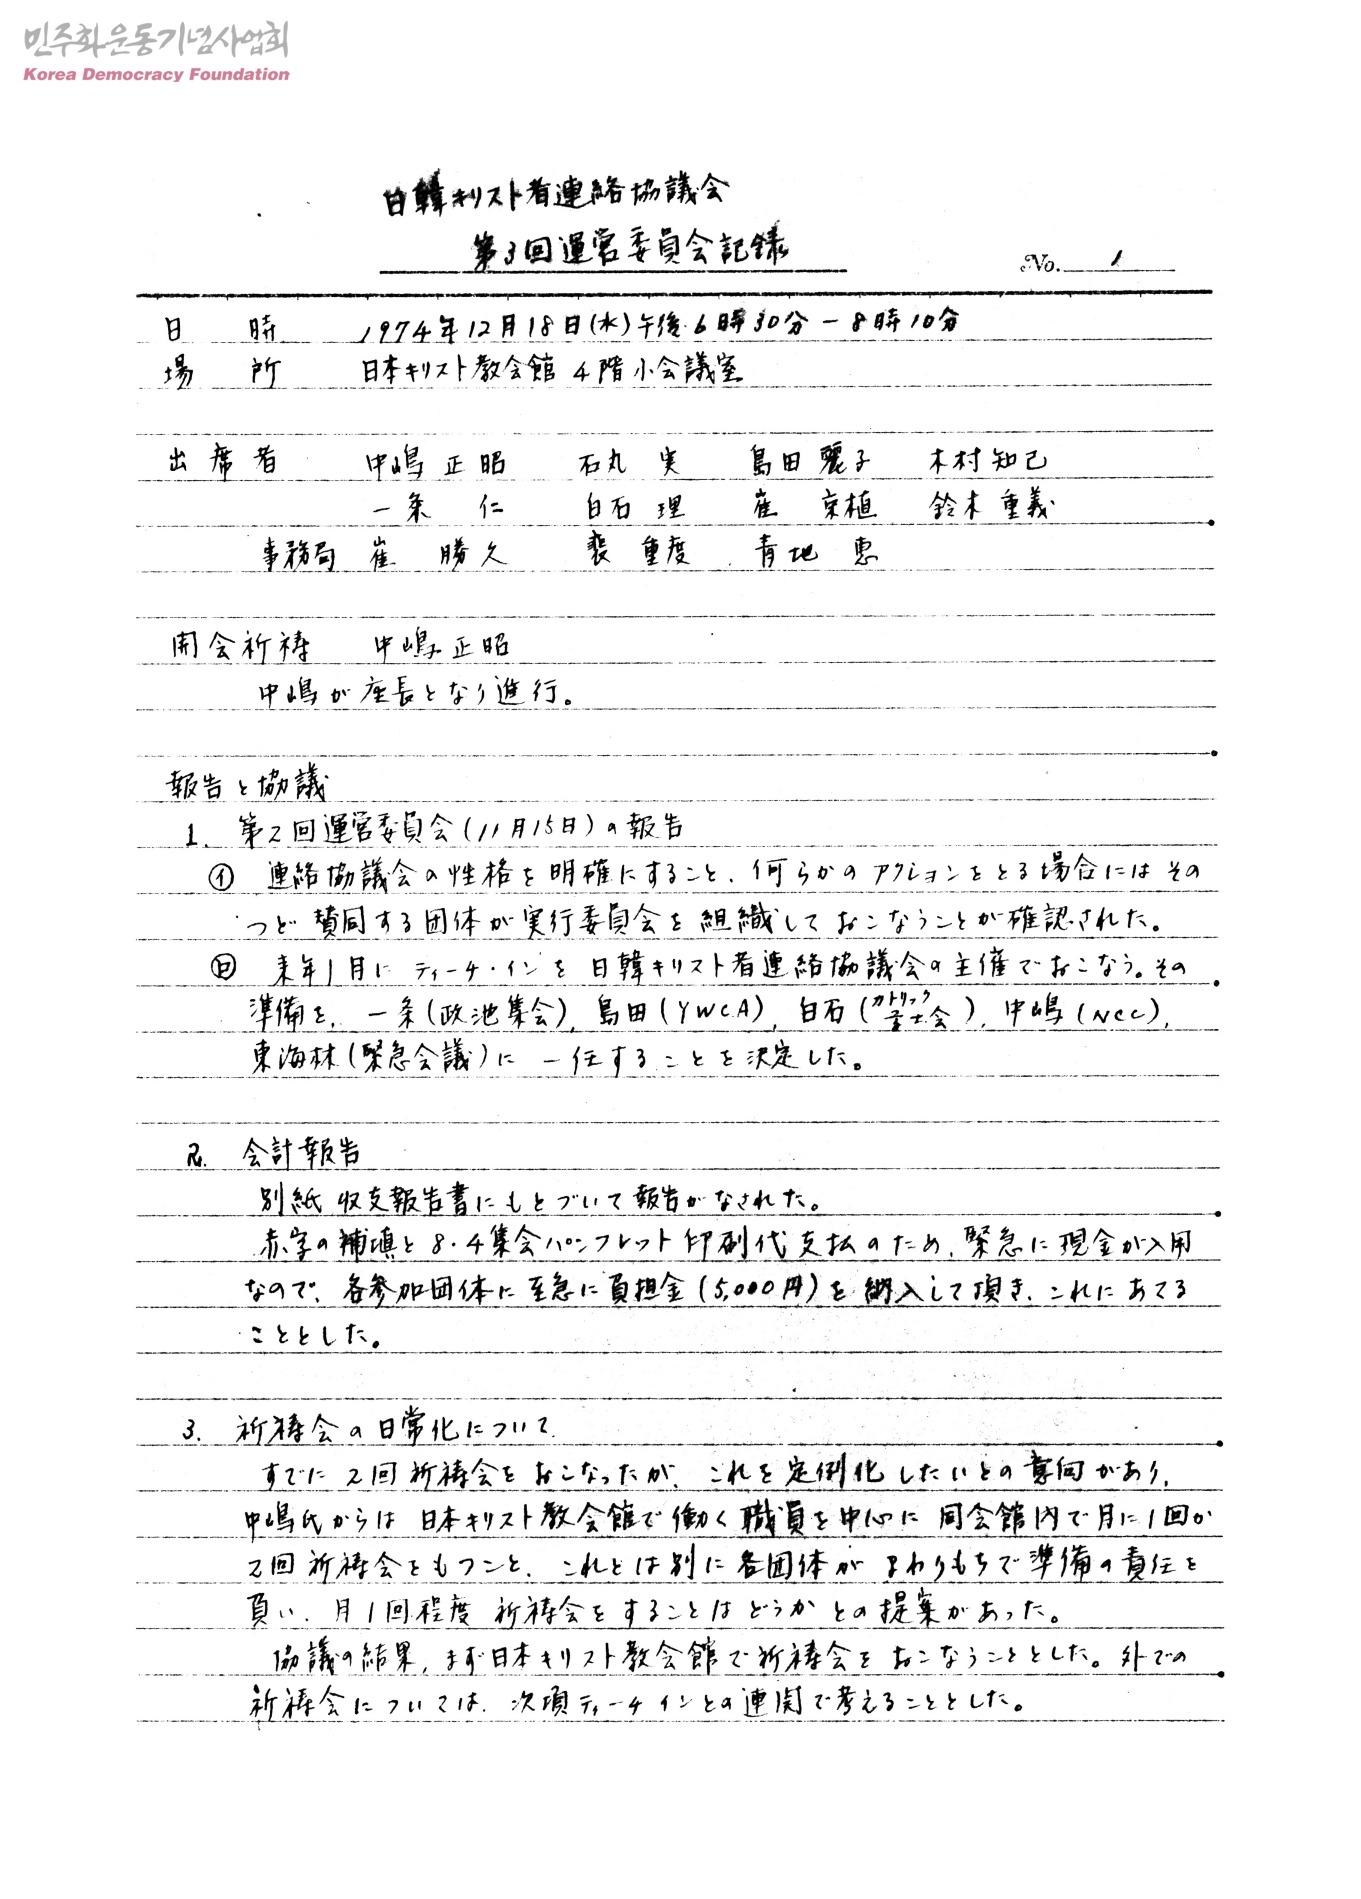 민주화운동기념사업회
Korea Democracy Foundation
日韓キリスト者連絡協議会
第3回運営委員会記録
No. 1
日 時 1974年12月18日(水)午後6時30分－8時10分
場 所 日本キリスト教会館 4階小会議室
出席者 中嶋正昭 石丸実 島田麗子 木村知己
一条仁 白石理 崔京植 鈴木重義
事務局 崔勝久 裵重度 青地恵
開会祈祷 中嶋正昭
中嶋が座長となり進行。
報告と協議
1. 第2回運営委員会(11月15日)の報告
㋑ 連絡協議会の性格を明確にすること、何らかのアクションをとる場合にはその
つど賛同する団体が実行委員会を組織しておこなうことが確認された。
㋺ 来年1月にティーチ・インを日韓キリスト者連絡協議会の主催でおこなう。その
準備を、一条(政池集会)、島田(YWCA)、白石(カトリック 会)、中嶋(NCC)、
東海林(緊急会議)に一任することを決定した。
2. 会計報告
別紙収支報告書にもとづいて報告がなされた。
赤字の補填と8・4集会パンフレット印刷代支払のため、緊急に現金が入用
なので、各参加団体に至急に負担金(5,000円)を納入して頂き、これにあてる
こととした。
3. 祈祷会の日常化について
すでに2回祈祷会をおこなったが、これを定例化したいとの意向があり、
中嶋氏からは日本キリスト教会館で働く職員を中心に同会館内で月に1回か
2回祈祷会をもつこと、これとは別に各団体がまわりもちで準備の責任を
負い、月1回程度祈祷会をすることはどうかとの提案があった。
協議の結果、まず日本キリスト教会館で祈祷会をおこなうこととした。外での
祈祷会については、次項ティーチインとの連関で考えることとした。